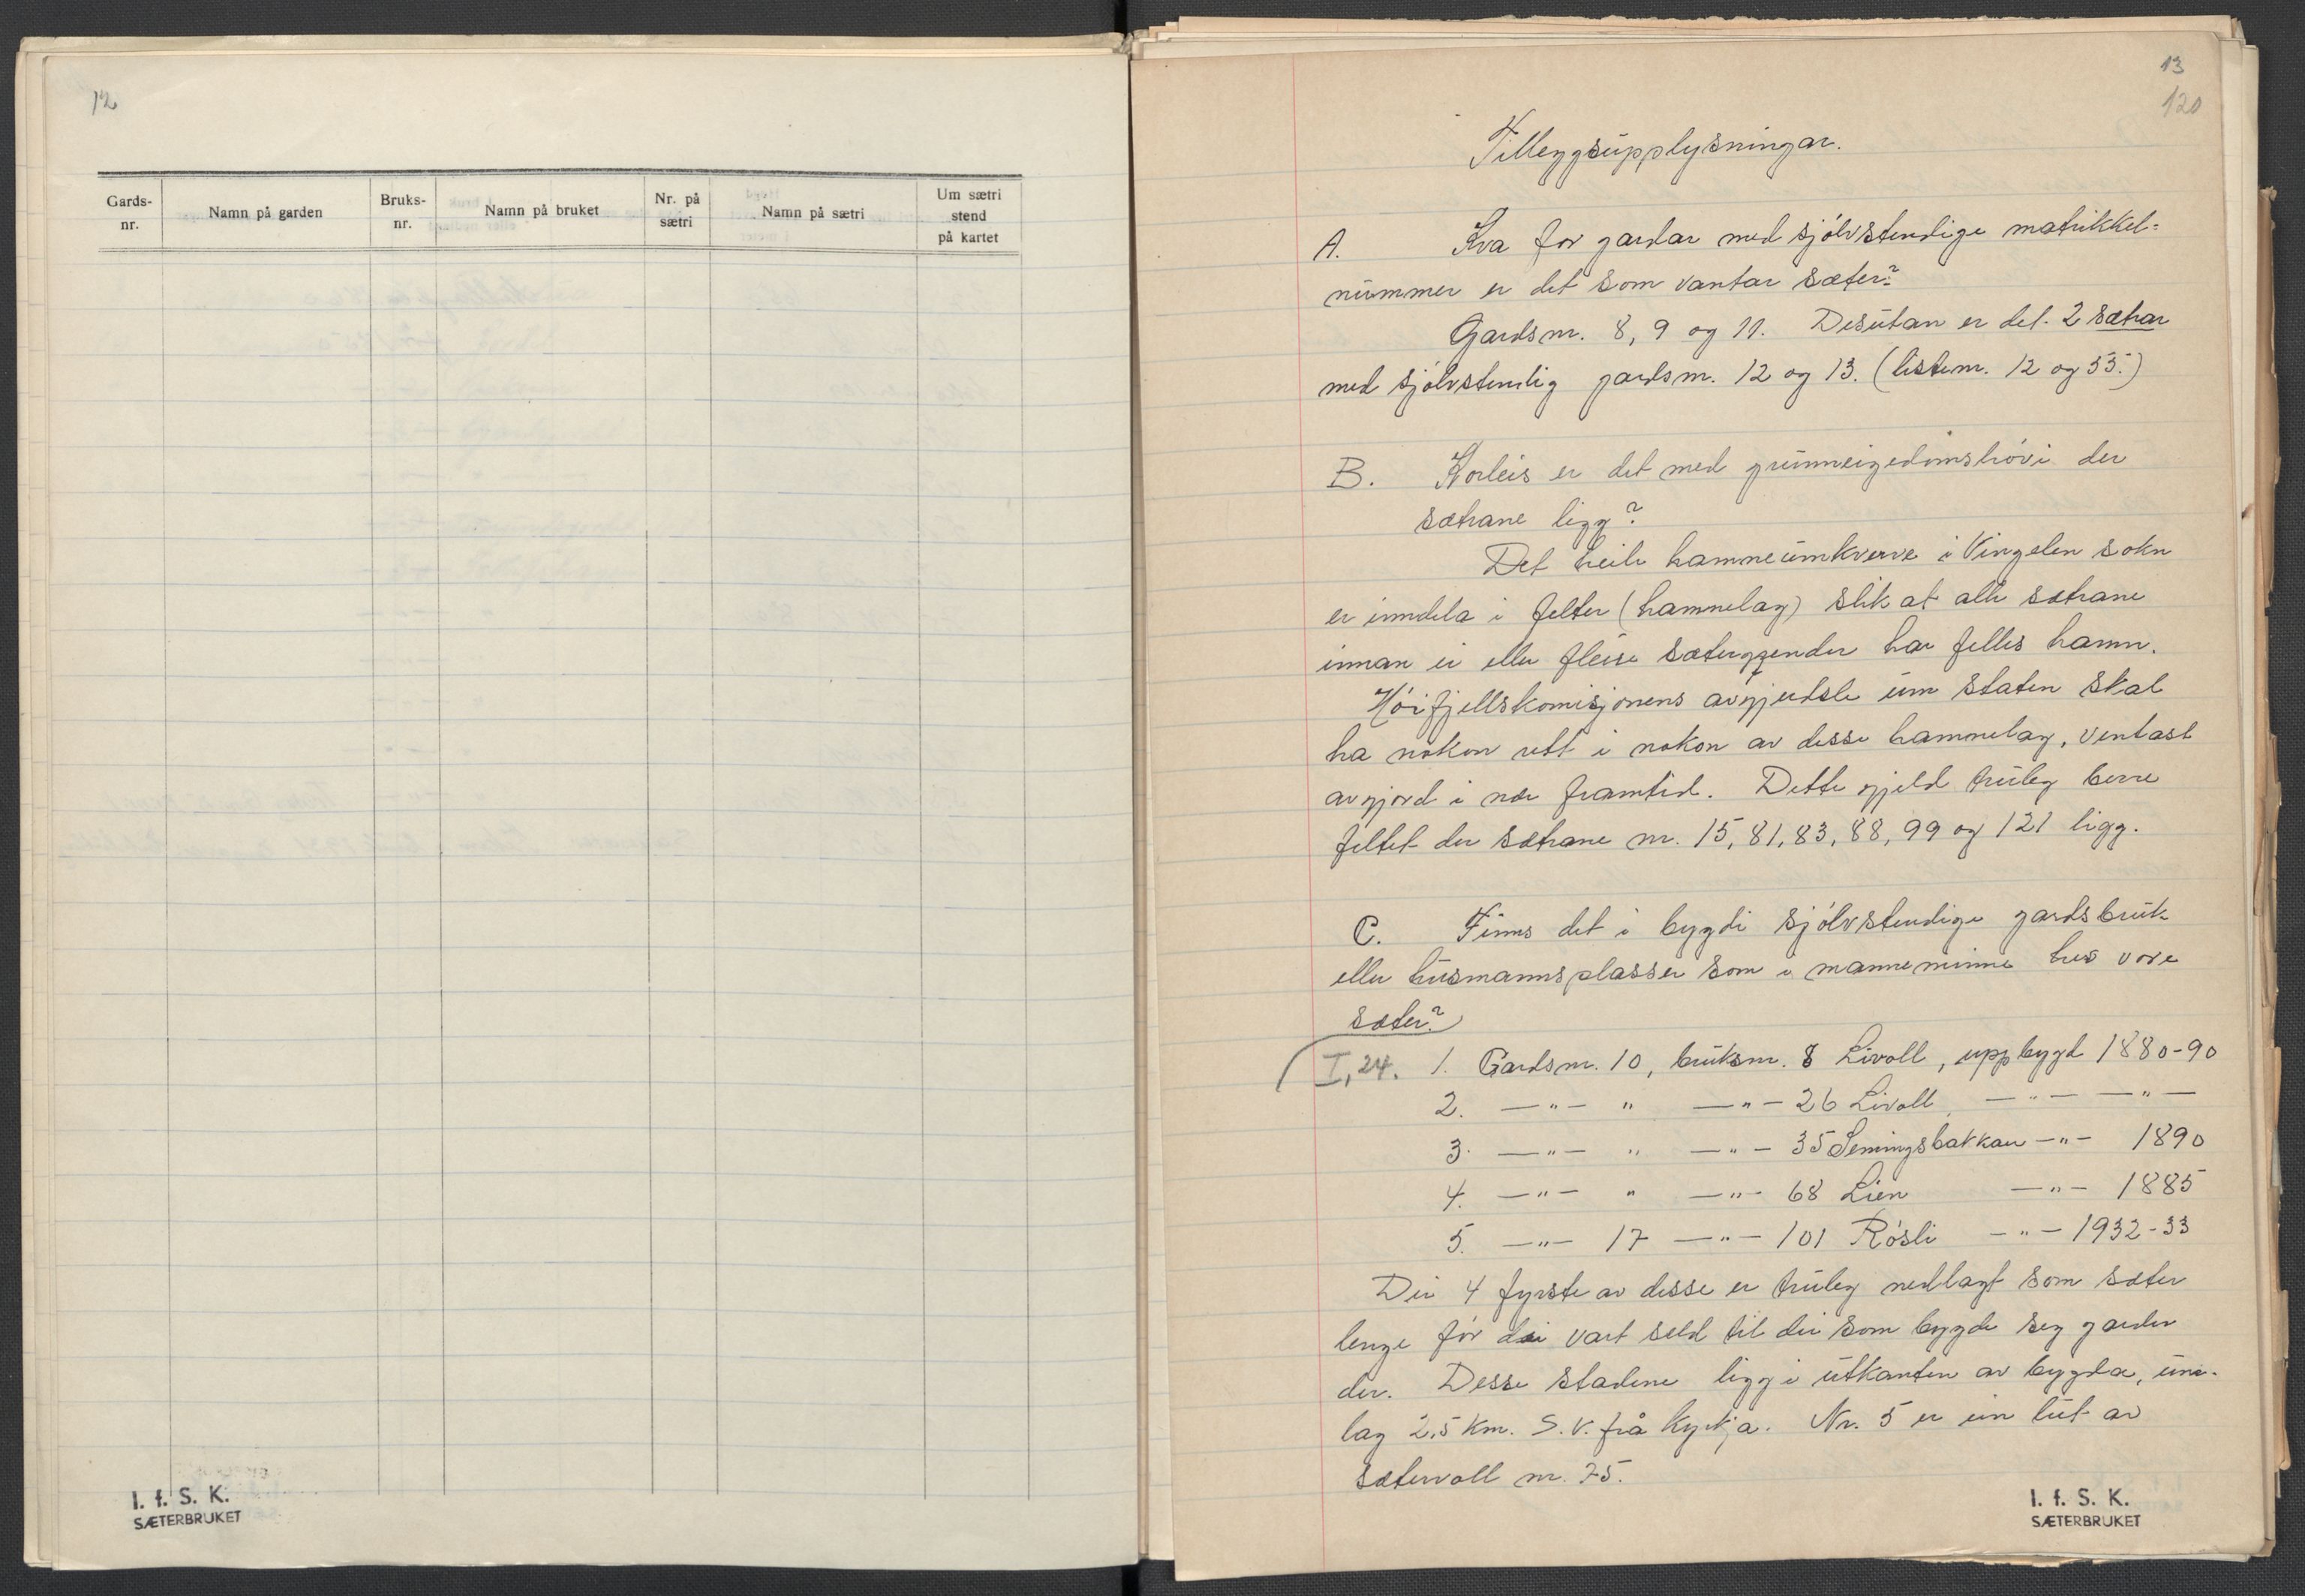 12
Gards-
nr.
Namn på garden
Bruks-
nr.
Namn på bruket
Nr. på
sætri
Namn på sætri
Um sætri
stend
på kartet
I. f. S. K.
SÆTERBRUKET
13
120
Tilleggsupplysningar.
A. Kva for gardar med sjølvstendige matrikkel-
nummer er det som vantar sæter?
Gardsnr. 8, 9 og 11. Desutan er det 2 sætrar
med sjølvstendig gardsnr. 12 og 13. (listenr. 12 og 55.)
B. Korleis er det med grunneigedomshøvi der
sætrane ligg?
Det heile hamneumkverve i Vingelen sokn
er inndela i felter (hamnelag) slik at alle sætrane
innan ei eller fleire sætergrender har felles hamn.
Høifjellskomisjonens avgjerdsle um staten skal
ha nokon rett i nokon av desse hamnelag, ventast
avgjord i nær framtid. Dette gjeld truleg berre
feltet der sætrane nr. 15, 81, 83, 88, 99 og 121 ligg.
C. Finns det i bygdi sjølvstendige gardsbruk
eller husmannsplasser som i manneminne hev vore
sæter?
I, 24. 1. Gardsnr. 10, bruksnr. 8 Livoll, uppbygd 1880-90
2. —"— " —"— 26 Livoll, —"— —"—
3. —"— " —"— 35 Semingsbakkan —"— 1890
4. —"— " —"— 68 Lien —"— 1885
5. —"— 17 —"— 101 Røsli —"— 1932-33
Dei 4 fyrste av desse er truleg nedlagt som sæter
lenge før dei vart seld til dei som bygde seg garder
der. Desse stadene ligg i utkanten av bygda, um-
lag 2,5 km. S.V. frå kyrkja. Nr. 5 er ein lut av
sætervoll nr. 75.
I. f. S. K.
SÆTERBRUKET